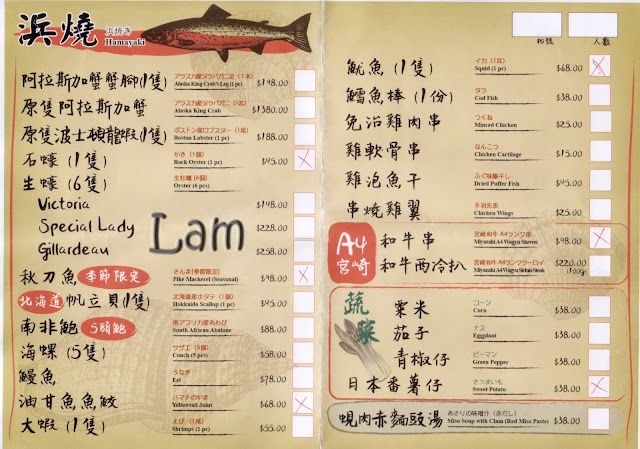 浜燒 浜焼き
Hamayaki
阿拉斯加蟹蟹腳(1隻) アラスカ産タラバガニ足(1本) Alaska King Crab's Leg (1 pc) $198.00
原隻阿拉斯加蟹 アラスカ産タラバガニ(1匹) Alaska King Crab $1380.00
原隻波士頓龍蝦(1隻) ボストン産ロブスター(1尾) Boston Lobster (1 pc) $188.00
石蠔(1隻) かき(1個) Rock Oyster (1 pc) $45.00
生蠔(6隻) 生牡蠣(6個) Oyster (6 pcs)
Victoria $148.00
Special Lady $228.00
Gillardeau $258.00
Lam
秋刀魚 季節限定 さんま(季節限定) Pike Mackerel (Seasonal) $98.00
北海道 帆立貝(1隻) 北海道産ホタテ(1個) Hokkaido Scallop (1 pc) $45.00
南非鮑 5頭鮑 南アフリカ産あわび South African Abalone $88.00
海螺(5隻) サザエ(5個) Conch (5 pcs) $58.00
鰻魚 うなぎ Eel $78.00
油甘魚魚鮫 ハマチのかま Yellowtail Joint $68.00
大蝦(1隻) えび(1尾) Shrimp (1 pc) $55.00
枱號 人數
魷魚(1隻) イカ(1匹) Squid (1 pc) $68.00
鱈魚棒(1份) タラ Cod Fish $38.00
免治雞肉串 つくね Minced Chicken $25.00
雞軟骨串 なんこつ Chicken Cartilage $15.00
雞泡魚干 ふぐ味醂干し Dried Puffer Fish $45.00
串燒雞翼 手羽先串 Chicken Wings $25.00
A4 宮崎
和牛串 宮崎和牛A4ランク串 Miyazaki A4 Wagyu Skewer $98.00
和牛西冷扒 宮崎和牛A4ランクサーロイン Miyazaki A4 Wagyu Sirloin Steak $220.00 /100g
蔬菜
粟米 コーン Corn $38.00
茄子 ナス Eggplant $38.00
青椒仔 ピーマン Green Pepper $38.00
日本番薯仔 さつまいも Sweet Potato $38.00
蜆肉赤麵豉湯 あさりの味噌汁(赤だし) Miso Soup with Clam (Red Miso Paste) $38.00